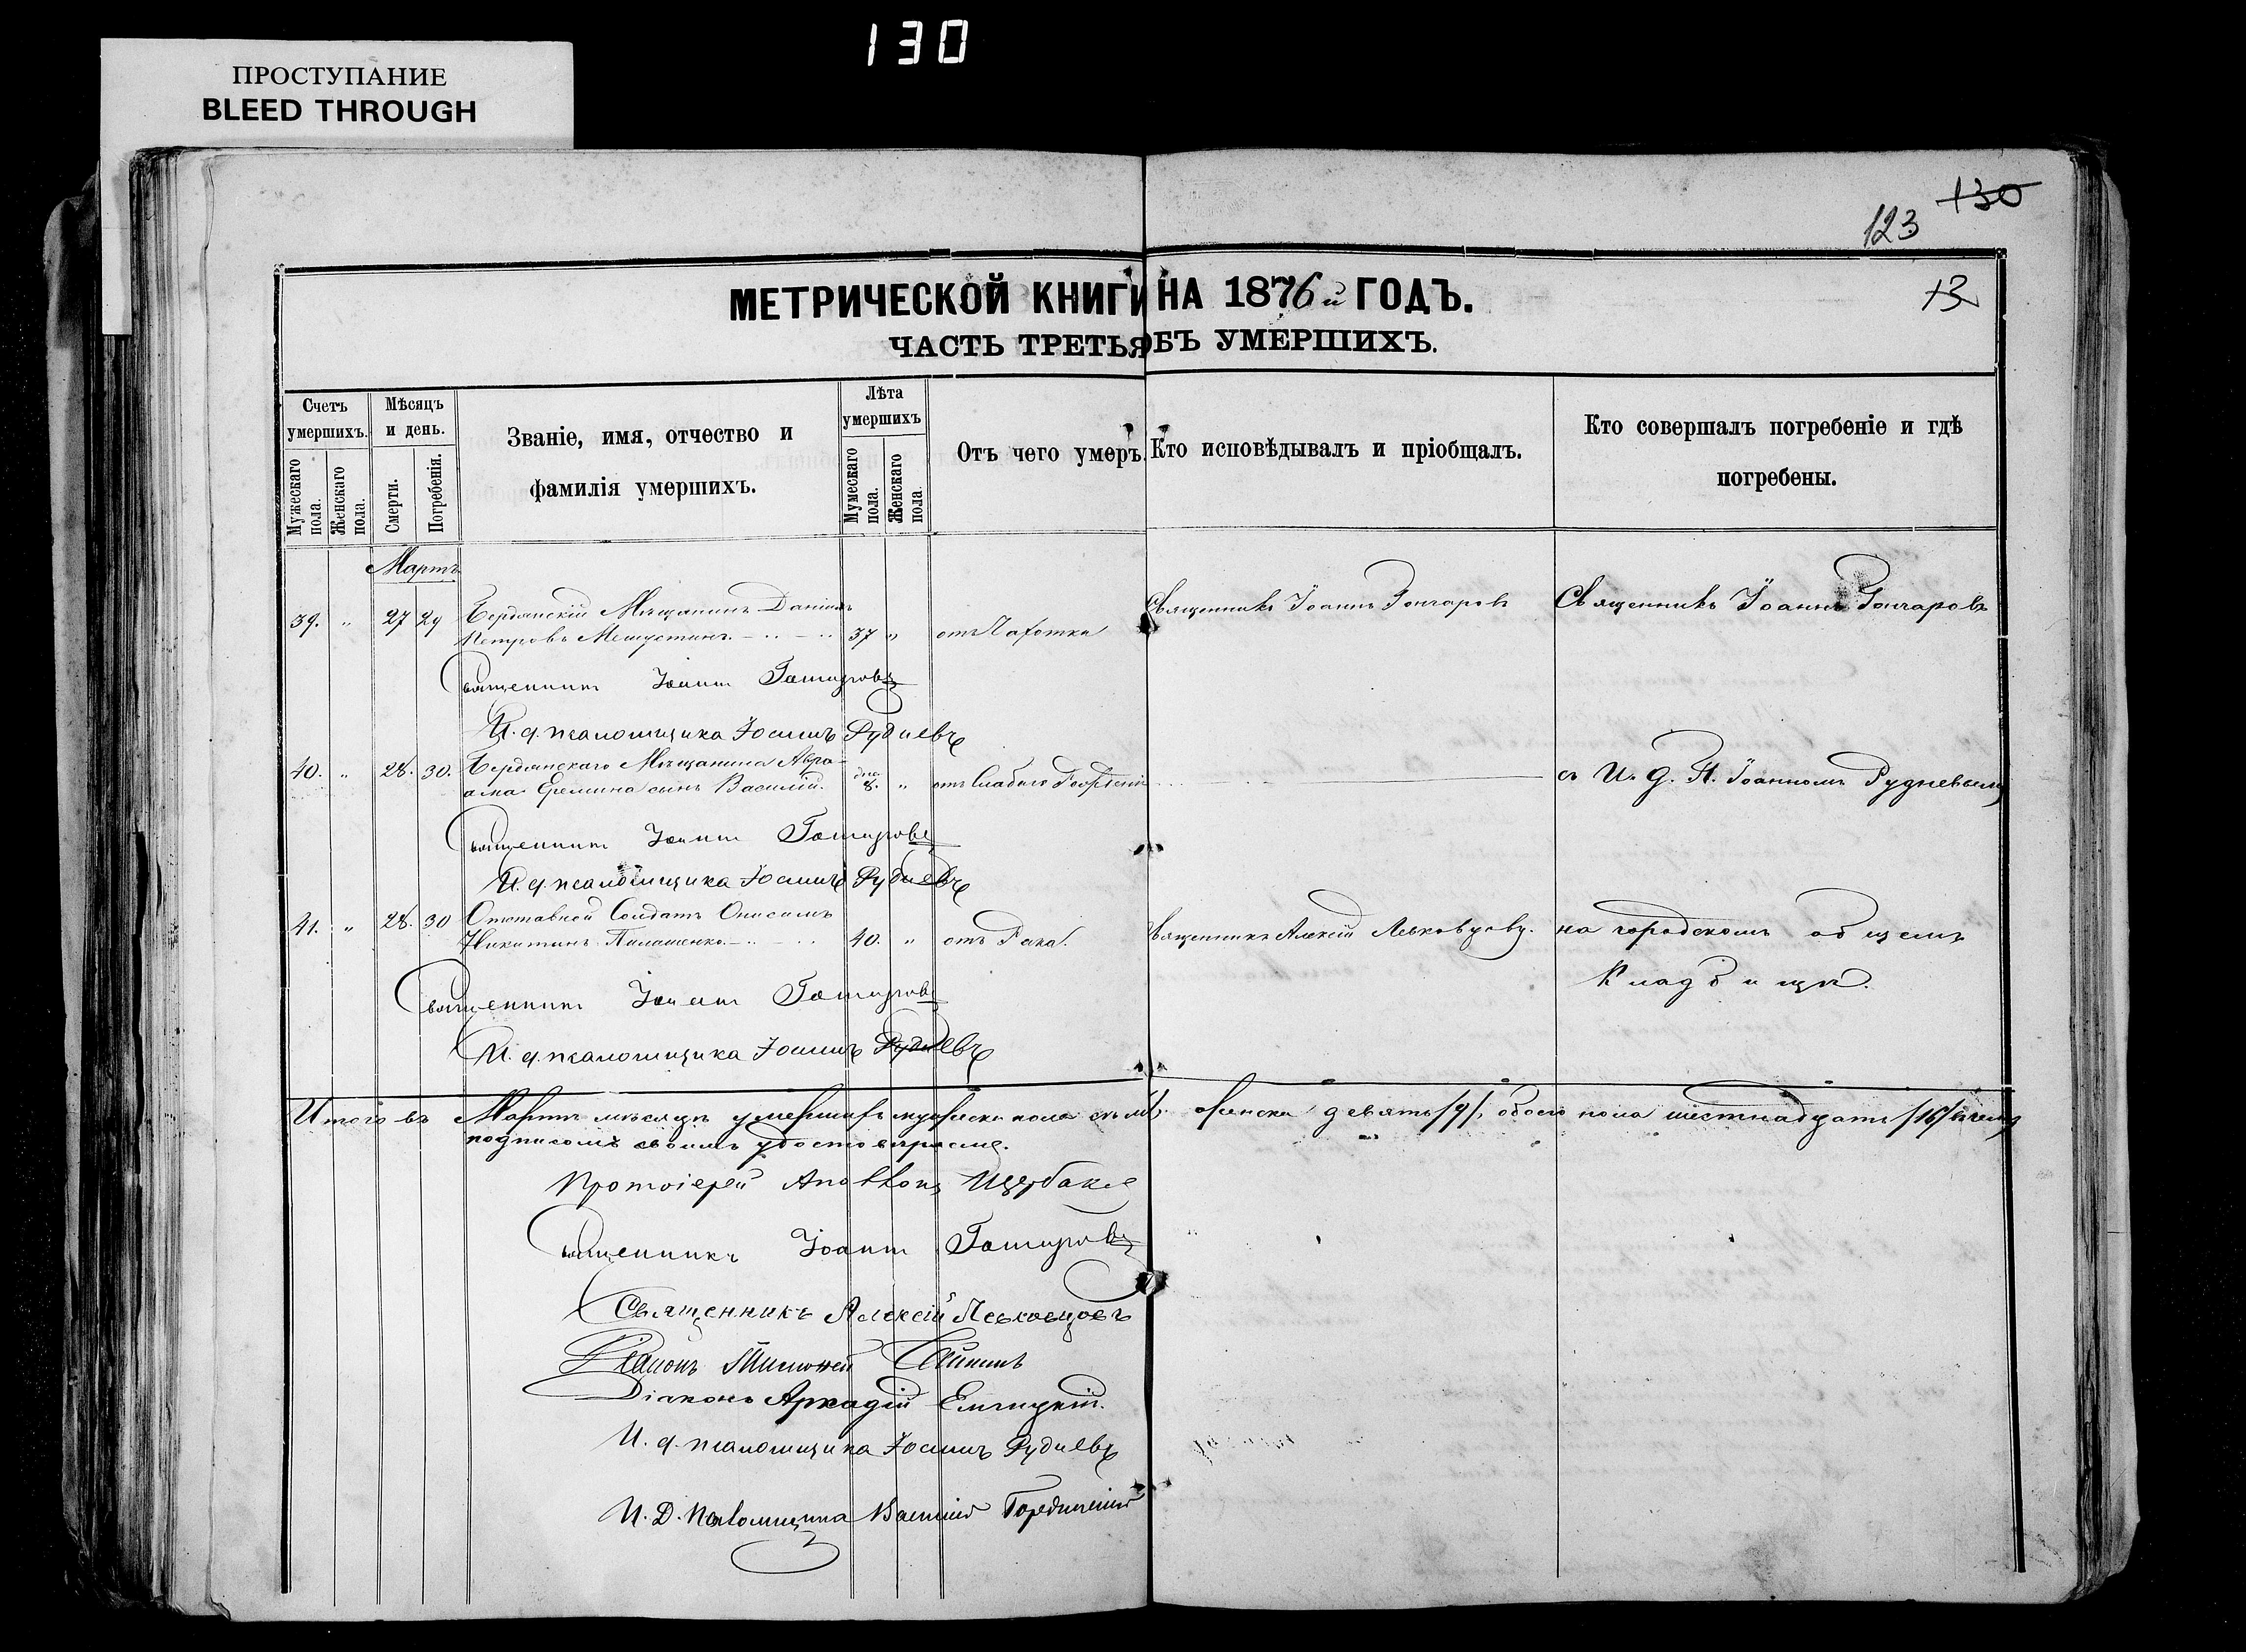 130
ПРОСТУПАНИЕ
BLEED THROUGH
130
123
13
МЕТРИЧЕСКОЙ КНИГИ НА 1876й ГОДЪ.
ЧАСТЬ ТРЕТЬЯ ОБЪ УМЕРШИХЪ.
Счетъ умершихъ.
Мужескаго пола.
Женскаго пола.
Мѣсяцъ и день.
Смерти.
Погребенія.
Званіе, имя, отчество и
фамилія умершихъ.
Лѣта умершихъ
Мужескаго пола.
Женскаго пола.
Отъ чего умеръ.
Кто исповѣдывалъ и пріобщалъ.
Кто совершалъ погребеніе и гдѣ
погребены.
Мартъ
39. " 27 29 Бердянскій Мѣщанинъ Даніилъ
Петровъ 37 " отъ Чахотки
Священникъ Іоаннъ Гончаровъ
Священникъ Іоаннъ Гончаровъ
Священникъ Іоаннъ Гончаровъ
И. д. псаломщика Іоаннъ Рудневъ
40. " 28. 30. Бердянскаго Мѣщанина Авра-
ама Еремина сынъ Василій. дне. 8. " отъ Слабаго
съ И. Д. П. Іоанномъ Рудневымъ
Священникъ Іоаннъ Гончаровъ
И. д. псаломщика Іоаннъ Рудневъ
41. " 28. 30 Отставной Солдатъ Онисимъ
Никитинъ 40. " отъ Рака.
Священникъ Алексій Левковцовъ.
на городскомъ общемъ
Кладбищѣ.
Священникъ Іоаннъ Гончаровъ
И. д. псаломщика Іоаннъ Рудневъ
Итого въ Мартѣ мѣсяцѣ умершихъ мужеска пола семь женска девять /9/, обоего пола шестнадцать /16/
подписомъ своимъ удостовѣряемъ.
Протоіерей
Священникъ Іоаннъ Гончаровъ
Священникъ Алексій Левковцовъ
Діаконъ Тимофей
Діаконъ Аркадій
И. д. псаломщика Іоаннъ Рудневъ
И. Д. Псаломщика Василій